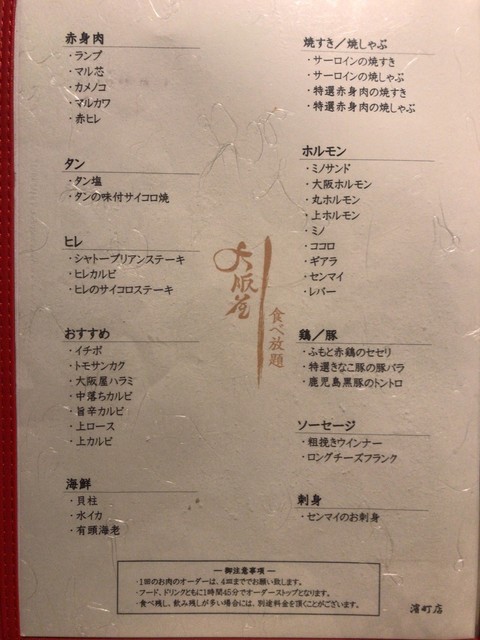 赤身肉
・ランプ
・マル芯
・カメノコ
・マルカワ
・赤ヒレ
タン
・タン塩
・タンの味付サイコロ焼
ヒレ
・シャトーブリアンステーキ
・ヒレカルビ
・ヒレのサイコロステーキ
おすすめ
・イチボ
・トモサンカク
・大阪屋ハラミ
・中落ちカルビ
・旨辛カルビ
・上ロース
・上カルビ
海鮮
・貝柱
・水イカ
・有頭海老
大阪屋
食べ放題
焼すき／焼しゃぶ
・サーロインの焼すき
・サーロインの焼しゃぶ
・特選赤身肉の焼すき
・特選赤身肉の焼しゃぶ
ホルモン
・ミノサンド
・大阪ホルモン
・丸ホルモン
・上ホルモン
・ミノ
・ココロ
・ギアラ
・センマイ
・レバー
鶏／豚
・ふもと赤鶏のセセリ
・特選きなこ豚の豚バラ
・鹿児島黒豚のトントロ
ソーセージ
・粗挽きウインナー
・ロングチーズフランク
刺身
・センマイのお刺身
― 御注意事項 ―
・1回のお肉のオーダーは、4皿まででお願い致します。
・フード、ドリンクともに1時間45分でオーダーストップとなります。
・食べ残し、飲み残しが多い場合には、別途料金を頂くことがございます。
濱町店